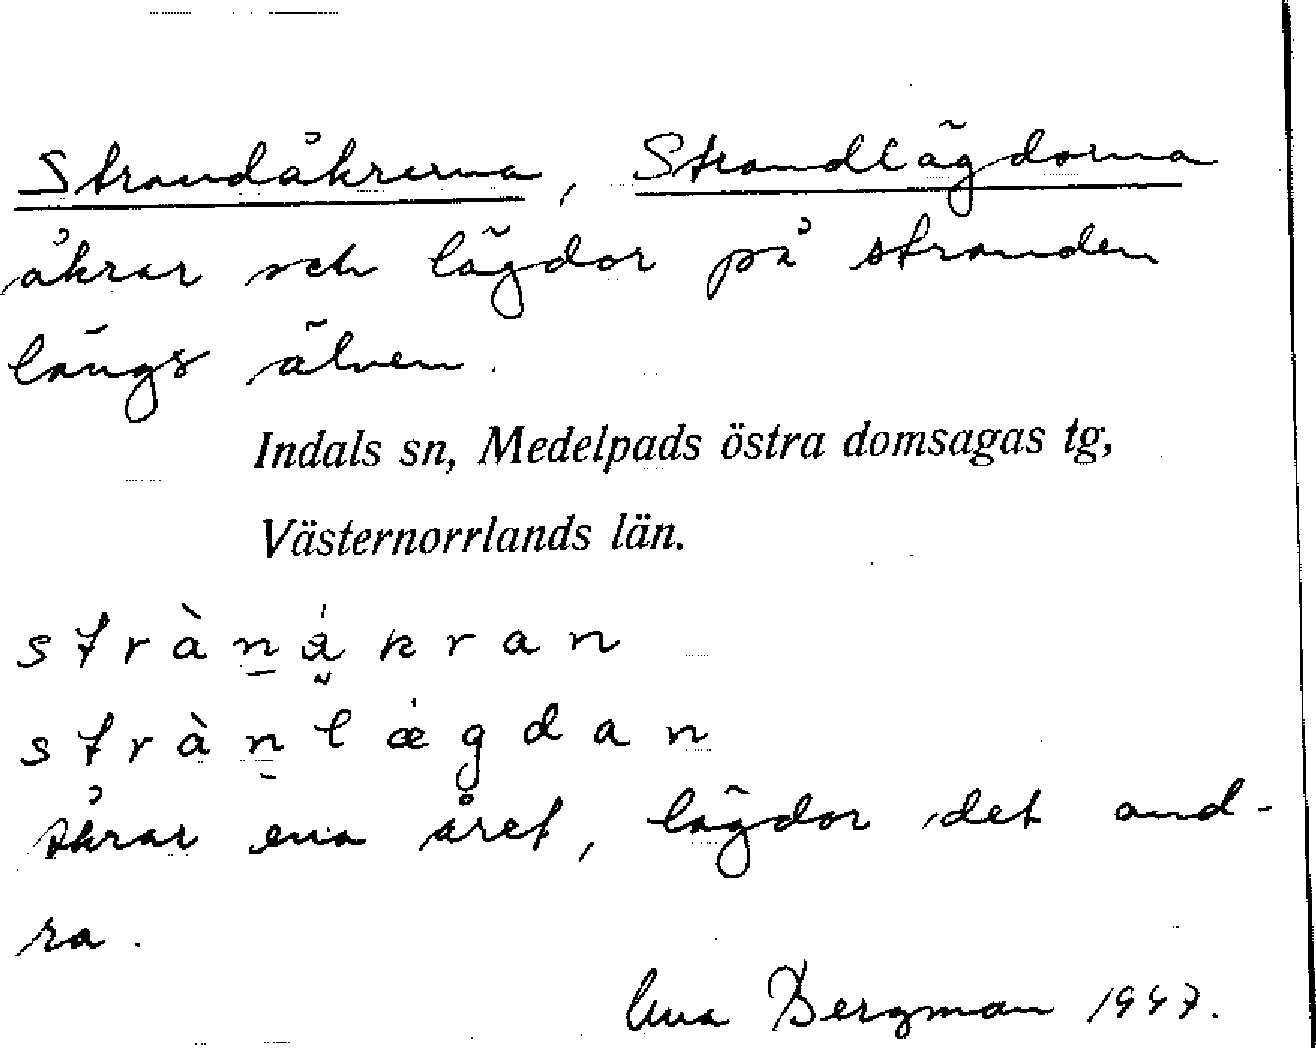 Strandåkrarna, Strandlägdorna
åkrar och lägdor på stranden
längs älven.
Indals sn, Medelpads östra domsagas tg,
Västernorrlands län.
stràn̠ǻkran
stràn̠lǽgdan
åkrar ena året, lägdor det and-
ra.
Bergman 1947.